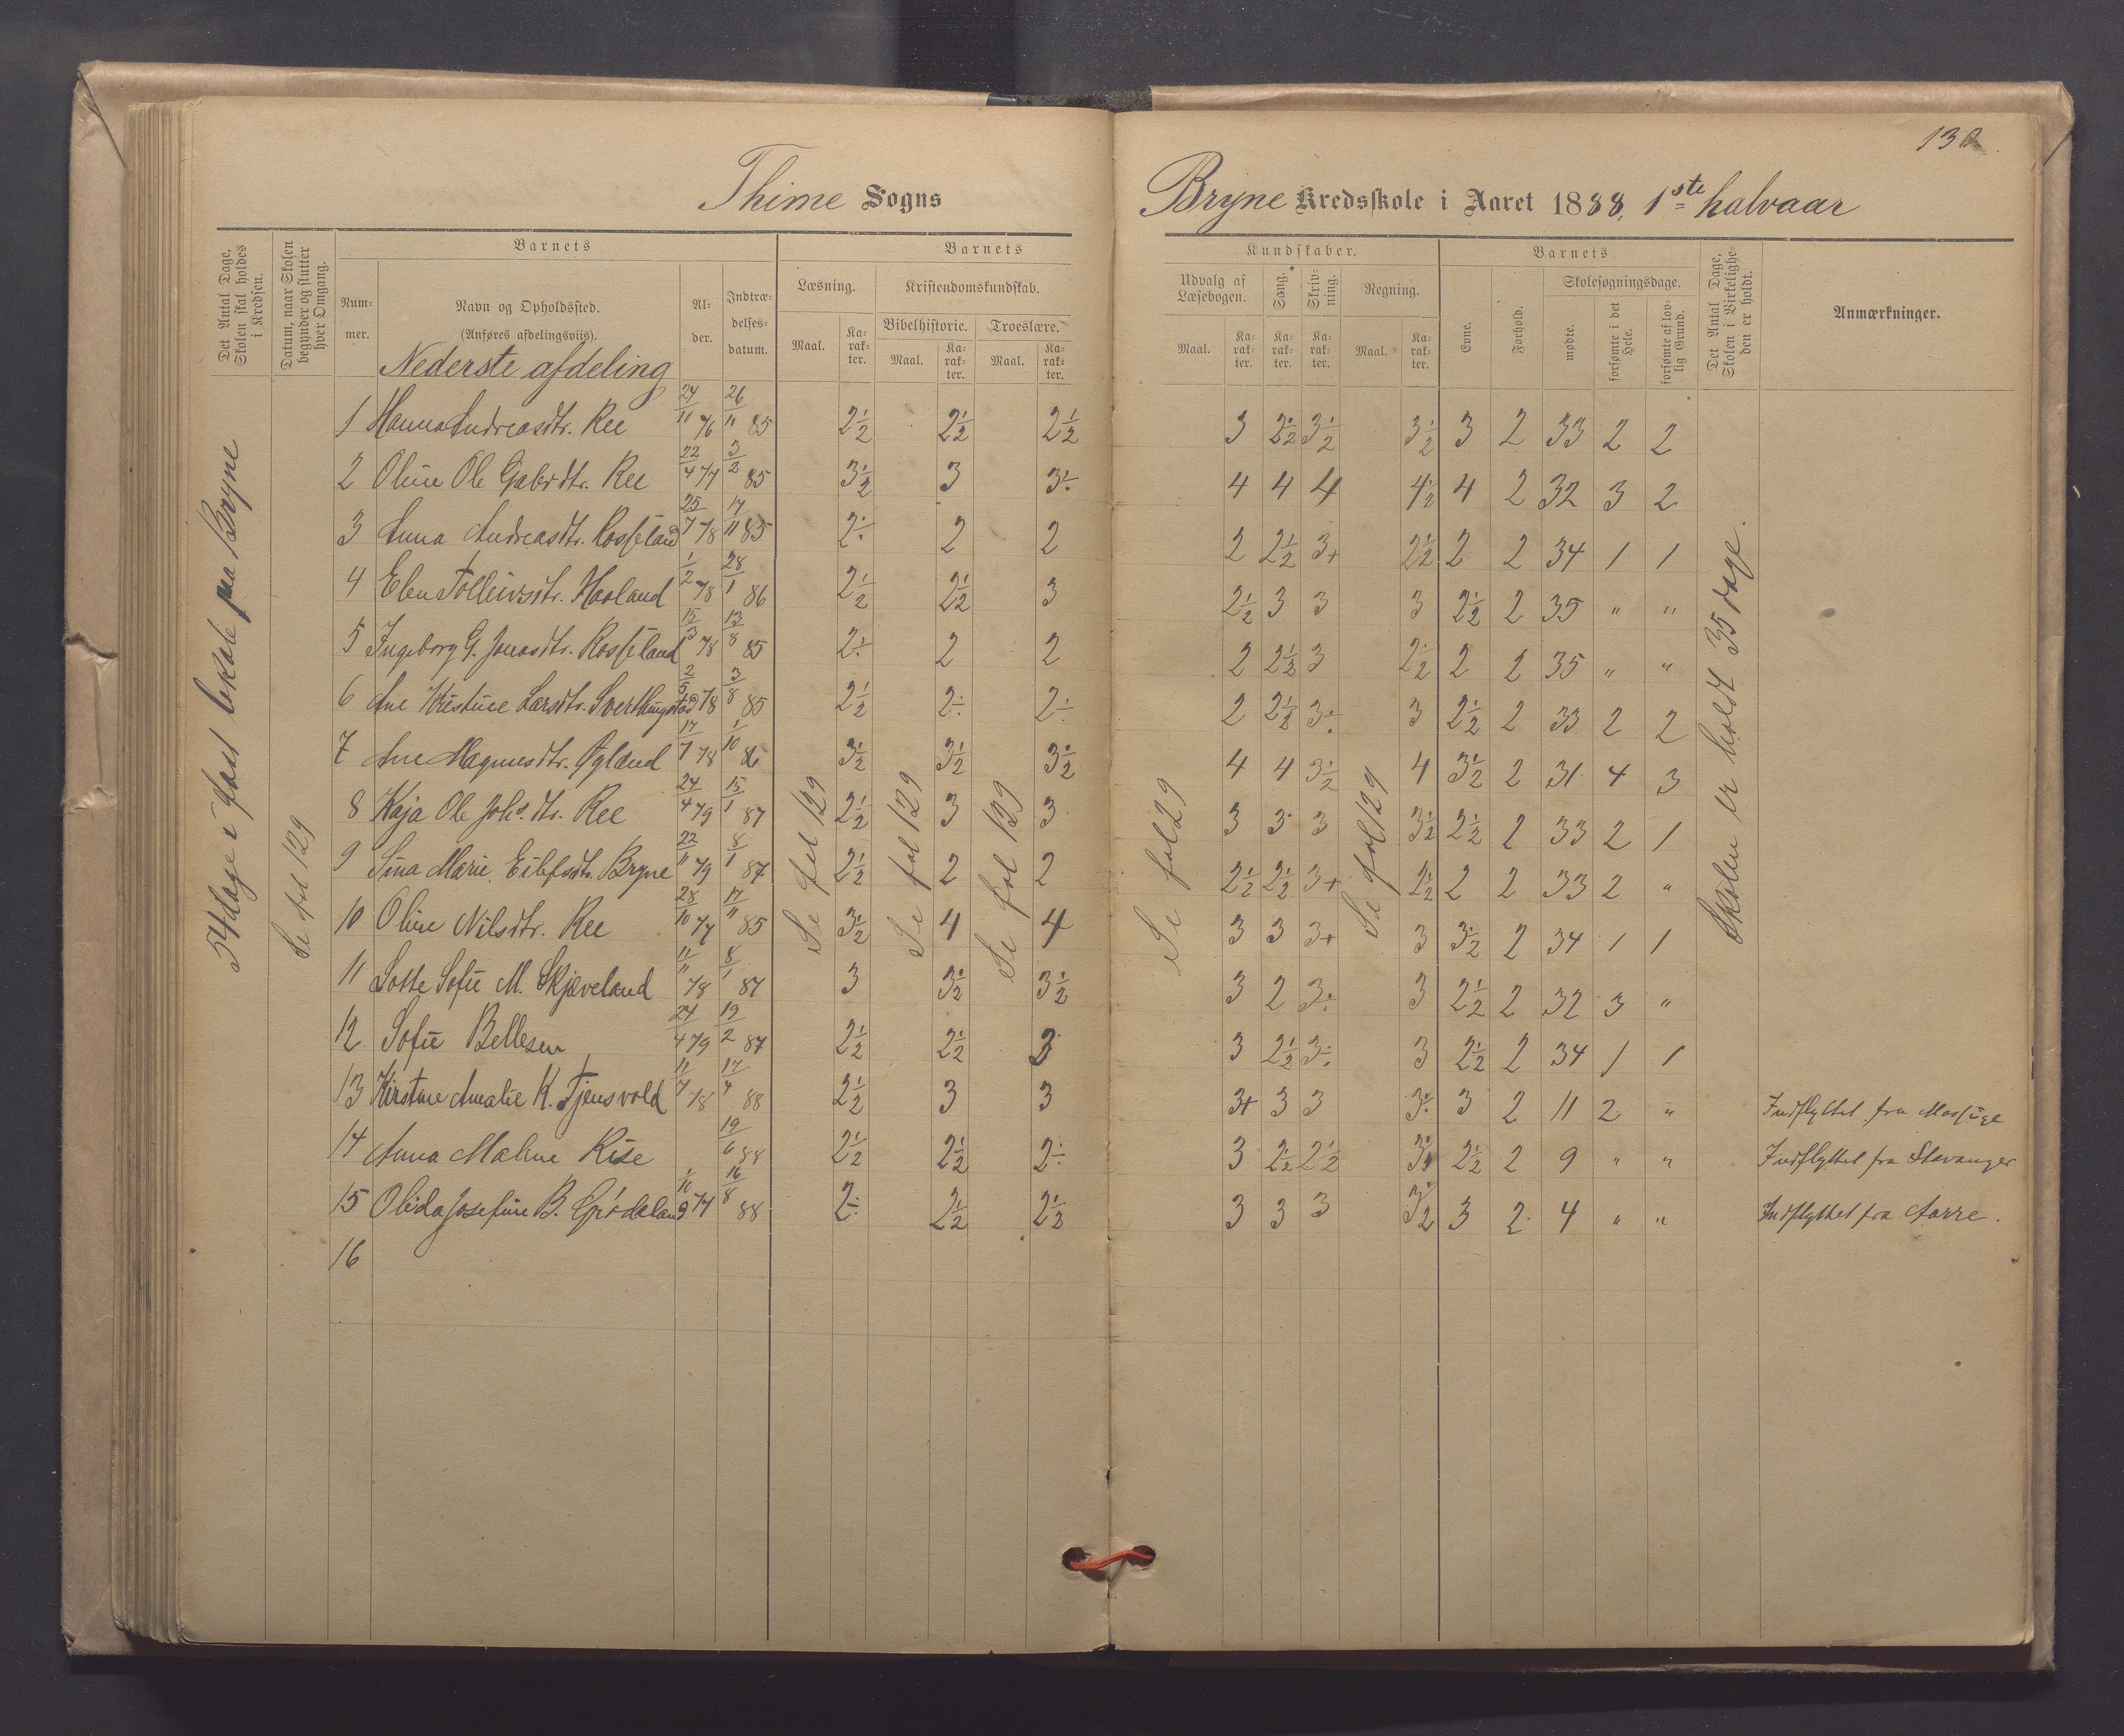 130
Thime Sogns
Bryne Kredsskole i Aaret 1888, 1ste halvaar
Det Antal Dage, Skolen skal holdes i Kredsen.
Datum, naar Skolen begynder og slutter hver Omgang.
Barnets
Nummer.
Navn og Opholdssted.
(Anføres afdelingsviis).
Alder.
Indtrædelsesdatum.
Barnets
Læsning.
Kristendomskundskab.
Bibelhistorie.
Troeslære.
Maal.
Karakter.
Maal.
Karakter.
Maal.
Karakter.
Kundskaber.
Udvalg af Læsebogen.
Sang.
Skrivning.
Regning.
Maal.
Karakter.
Karakter.
Karakter.
Maal.
Karakter.
Barnets
Evne.
Forhold.
Skolesøgningsdage.
mødte.
forsømte i det Hele.
forsømte af lovlig Grund.
Det Antal Dage, Skolen i Virkeligheden er holdt.
Anmærkninger.
Nederste afdeling
54 dage i fast lokale paa Bryne
Se fol 129
Se fol 129
Se fol 129
Se fol 129
Se fol 29
Se fol 129
Skolen er holdt 35 dage.
1 Hanna Andreasdtr. Ree 24/11 76 26/11 85 2½ 2½ 2½ 3 2½ 3½ 3½ 3 2 33 2 2
2 Oline Ole Gabrdtr. Ree 22/4 77 3/2 85 3½ 3 3÷ 4 4 4 4½ 4 2 32 3 2
3 Anna Andreasdtr. Rosseland 25/7 78 17/11 85 2÷ 2 2 2 2½ 3+ 2½ 2 2 34 1 1
4 Elen Tolleivsdtr. Haaland 1/2 78 28/1 86 2½ 2½ 3 2½ 3 3 3 2½ 2 35 " "
5 Ingeborg G. Jonasdtr. Rosseland 15/3 78 13/8 85 2÷ 2 2 2 2½ 3 2½ 2 2 35 " "
6 Ane Kristine Larsdtr. Sverthingstad 2/5 78 3/8 85 2½ 2÷ 2÷ 2 2½ 3÷ 3 2½ 2 33 2 2
7 Ane Magnusdtr. Øgland 17/7 78 1/10 86 3½ 3½ 3½ 4 4 3½ 4 3½ 2 31 4 3
8 Kaja Ole Johs. dtr. Ree 24/4 79 15/1 87 2½ 3 3 3 3 3 3½ 2½ 2 33 2 1
9 Sina Marie Eilefsdtr. Bryne 22/11 79 8/1 87 2½ 2 2 2½ 2½ 3+ 2½ 2 2 33 2 "
10 Oline Nilsdtr. Ree 28/10 77 17/11 85 3½ 4 4 3 3 3+ 3 3½ 2 34 1 1
11 Lotte Sofie M. Skjæveland 11/11 78 8/1 87 3 3½ 3½ 3 2 3÷ 3 2½ 2 32 3 "
12 Sofie Bellesen 24/4 79 19/2 87 2½ 2½ 3 3 2½ 3÷ 3 2½ 2 34 1 1
13 Kirstine Amalie K. Tjensvold 11/7 78 17/4 88 2½ 3 3 3+ 3 3 3÷ 3 2 11 2 " Indflyttet fra Mossige
14 Anna Maline Rise 19/6 88 2½ 2½ 2÷ 3 2½ 2½ 2½ 2 9 " " Indflyttet fra Stavanger
15 Olida Josefine B. Grødeland 1/10 77 16/8 88 2÷ 2½ 2½ 3 3 3 3½ 3 2 4 " " Indflyttet fra Aarre.
16